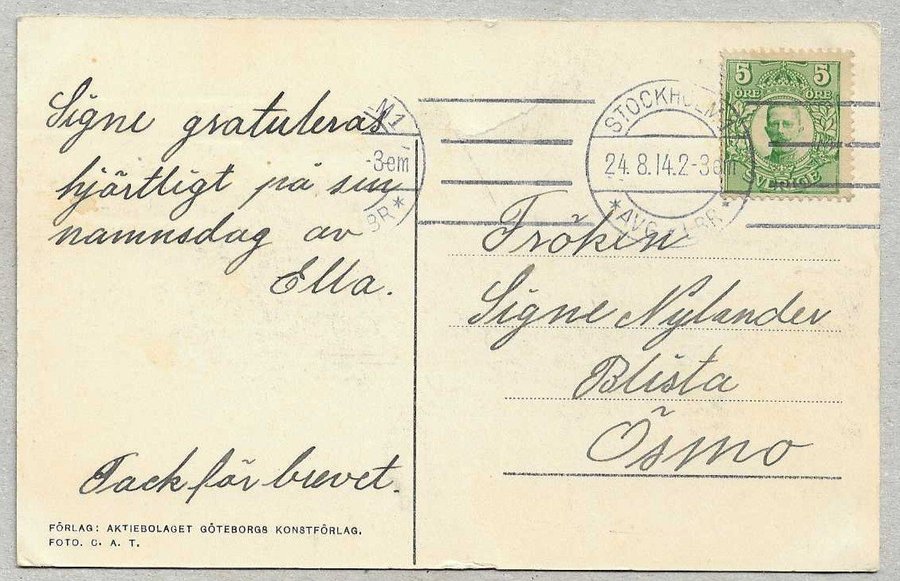 Signe gratuleras
hjärtligt på sin
namnsdag av
Ella.
Tack för brevet.
FÖRLAG: AKTIEBOLAGET GÖTEBORGS KONSTFÖRLAG.
FOTO. C. A. T.
M 1
-3 em
BR*
STOCKHOLM 1
24.8.14.2-3 em
*AVG. BR*
5 5
ÖRE ÖRE
SVERIGE
Fröken
Signe Nylander
Blista
Ösmo